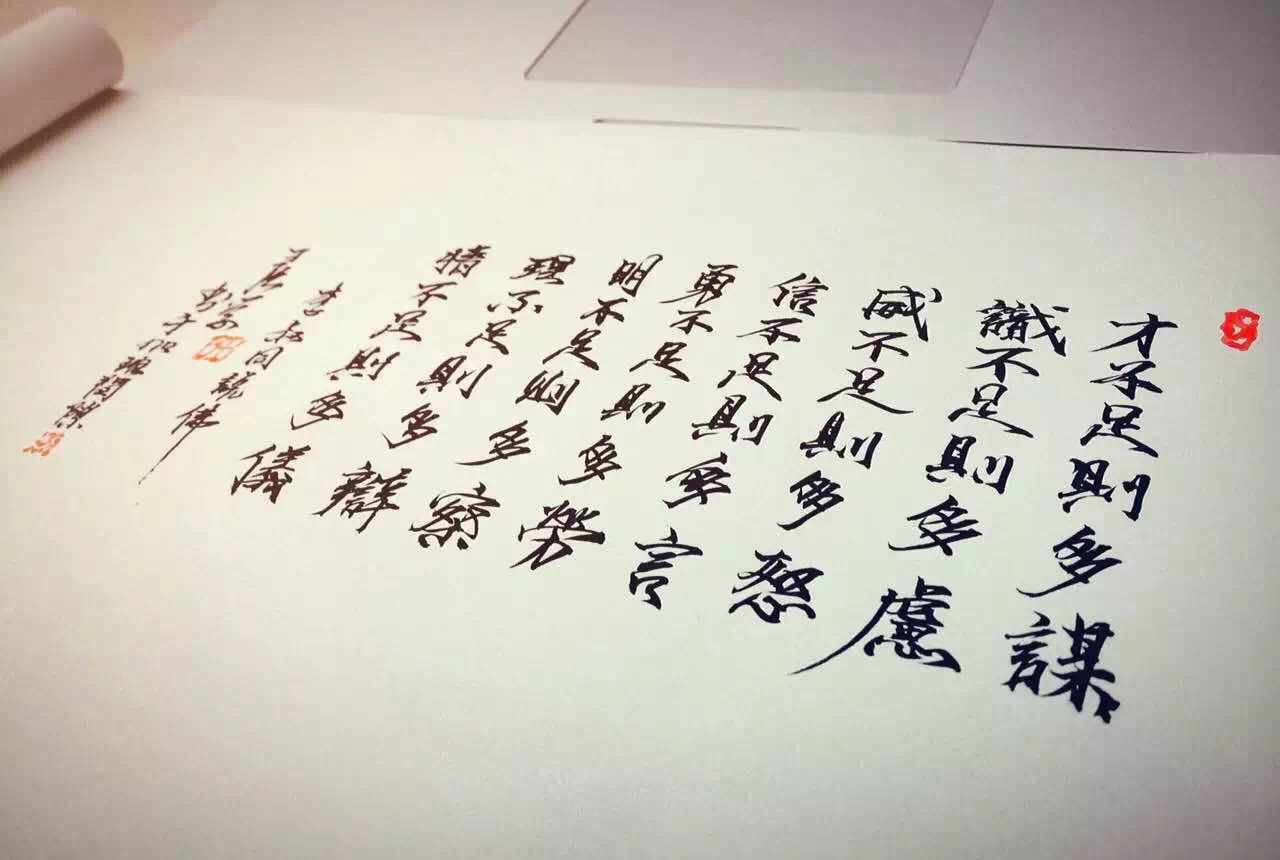 才不足則多謀
識不足則多慮
威不足則多怒
信不足則多言
勇不足則多勞
明不足則多察
理不足則多辯
情不足則多儀